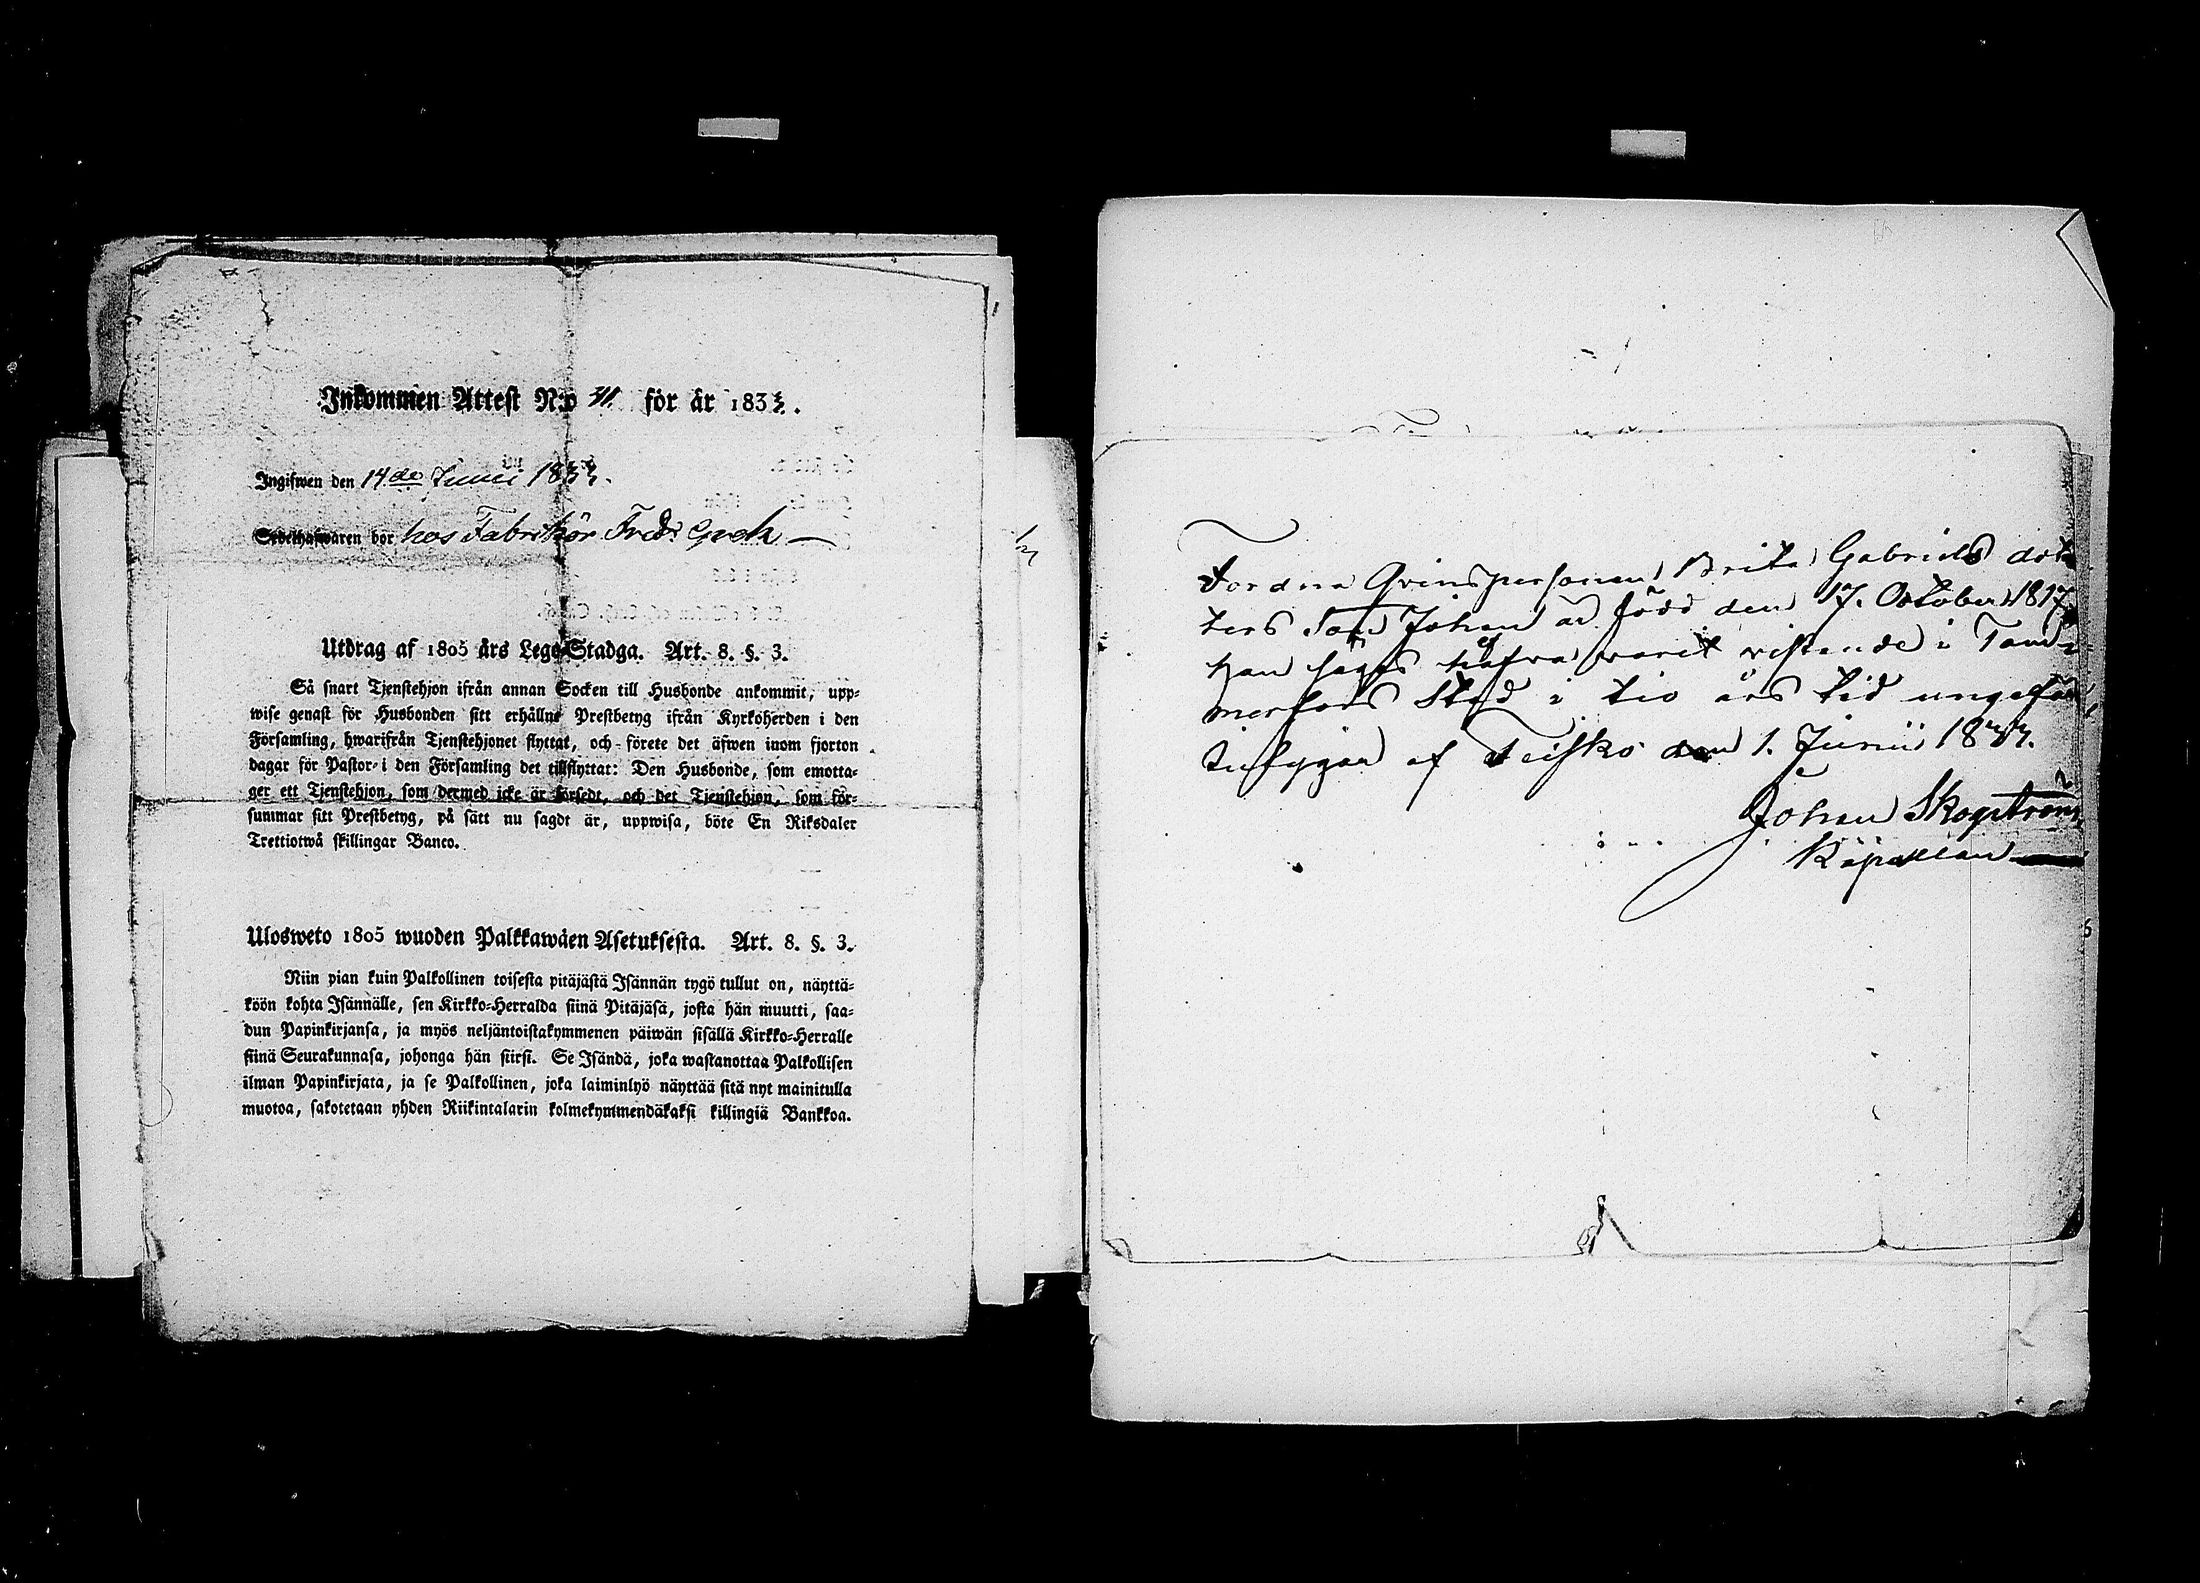 Inkommen Attest N:o 41 för år 1833.
Ingifwen den 14de Junii 1833.
Sedelhafwaren bor hos Fabrikör Fredr
Utdrag af 1805 års Lego-Stadga. Art. 8. §. 3.
Så snart Tjenstehjon ifrån annan Socken till Husbonde ankommit, upp-
wise genast för Husbonden sitt erhållne Prestbetyg ifrån Kyrkoherden i den
Församling, hwarifrån Tjenstehjonet flyttat, och förete det äfwen inom fjorton
dagar för Pastor i den Församling det tillflyttat: Den Husbonde, som emotta-
ger ett Tjenstehjon, som dermed icke är försedt, och det Tjenstehjon, som för-
summar sitt Prestbetyg, på sätt nu sagdt är, uppwisa, böte En Riksdaler
Trettiotwå skillingar Banco.
Ulosweto 1805 wuoden Palkkawäen Asetuksesta. Art. 8. §. 3.
Niin pian kuin Palkollinen toisesta pitäjästä Isännän tygö tullut on, näyttä-
köön kohta Isännälle, sen Kirkko-Herralda siinä Pitäjäsä, josta hän muutti, saa-
dun Papinkirjansa, ja myös neljäntoistakymmenen päiwän sisällä Kirkko-Herralle
siinä Seurakunnasa, johonga hän siirsi. Se Isändä, joka wastanottaa Palkollisen
ilman Papinkirjata, ja se Palkollinen, joka laiminlyö näyttää sitä nyt mainitulla
muotoa, sakotetaan yhden Riikintalarin kolmekymmendäkaksi killingiä Bankkoa.
Fordna Qvinspersonen Brita Gabriels dot
ters Son Johan är född den 17. October 1817
han säges hafva varit vistande i Tam-
merfors Stad i tio års tid ungefär
betygar af Teisko den 1. Junii 1833.
Johan Skogström
Kapellan